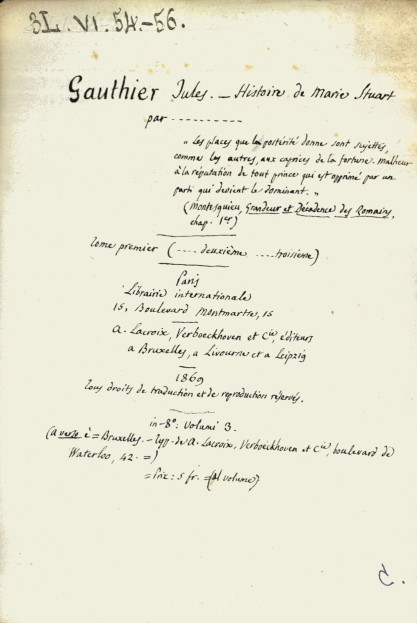 3L.VI.54.-56.
Gauthier Jules. – Histoire de Marie Stuart
par ----------
" Les places que la postérité donne sont sujettes,
comme les autres, aux caprices de la fortune. Malheur
à la réputation de tout prince qui est opprimé par un
parti qui devient le dominant. "
(Montesquieu, Grandeur et Décadence des Romains,
chap. 1er)
Tome premier (.... deuxième .... troisième)
Paris
Librairie internationale
15, Boulevard Montmartre, 15
A. Lacroix, Verboeckhoven et Cie, éditeurs
a Bruxelles, a Livourne et a Leipzig
1869
Tous droits de traduction et de reproduction réservés.
in-8°: Volumi 3.
(a verso è = Bruxelles. – Typ. de A. Lacroix, Verboeckhoven et Cie, boulevard de
Waterloo, 42. =)
= Prix: 5 fr. = (al volume)
C.